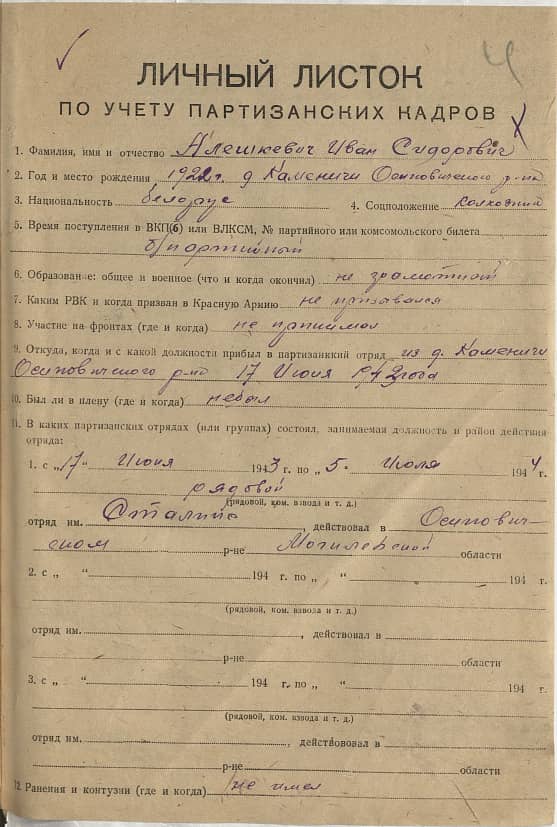 4
ЛИЧНЫЙ ЛИСТОК
ПО УЧЕТУ ПАРТИЗАНСКИХ КАДРОВ
1. Фамилия, имя и отчество Алешкевич Иван Сидорович
2. Год и место рождения 1922г. д Каменичи Осиповичского р-на
3. Национальность белорус 4. Соцположение колхозник
5. Время поступления в ВКП(б) или ВЛКСМ, № партийного или комсомольского билета
б/партийный
6. Образование: общее и военное (что и когда окончил) не грамотный
7. Каким РВК и когда призван в Красную Армию не призывался
8. Участие на фронтах (где и когда) не принимал
9. Откуда, когда и с какой должности прибыл в партизанкий отряд из д. Каменичи
Осиповичского р-на 17 Июня 1943 года
10. Был ли в плену (где и когда) небыл
11. В каких партизанских отрядах (или группах) состоял, занимаемая должность и район действия
отряда:
1. с „17“ Июня 1943 г. по „5. Июля 1944 г.
рядовой
(рядовой, ком. взвода и т. д.)
отряд им. Сталина, действовал в Осипович-
ском р-не Могилевской области
2. с „ “ 194 г. по „ “ 194 г.
(рядовой, ком. взвода и т. д.)
отряд им. , действовал в
р-не области
3. с „ “ 194 г. по „ “ 194 г.
(рядовой, ком. взвода и т. д.)
отряд им. , действововал в
р-не области
12. Ранения и контузии (где и когда) не имел